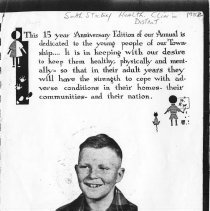 South Stukely Health Clinic in
District
This 15 year Anniversary Edition of our Annual is
dedicated to the young people of our Town-
ship.... It is in keeping with our desire
to keep them healthy, physically and ment-
ally- so that in their adult years they
will have the strength to cope with ad-
verse conditions in their homes- their
communities- and their nation.